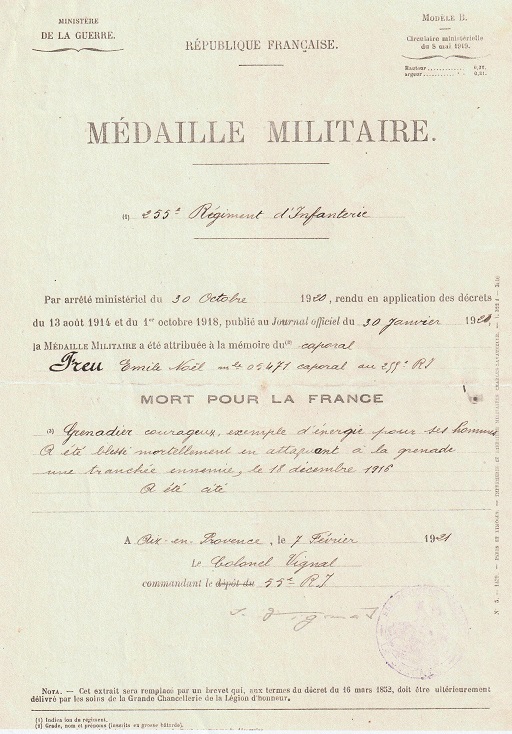 MINISTÈRE
DE LA GUERRE.
RÉPUBLIQUE FRANÇAISE.
MODÈLE B.
Circulaire ministérielle
du 8 mai 1919.
Hauteur 0,32.
argeur 0,21.
MÉDAILLE MILITAIRE.
(1) 255e Régiment d'Infanterie
Par arrêté ministériel du 30 Octobre 1920, rendu en application des décrets
du 13 août 1914 et du 1er octobre 1918, publié au Journal officiel du 30 Janvier 1921,
la MÉDAILLE MILITAIRE a été attribuée à la mémoire du(2) caporal
Freu Emile Noël mle 05471 caporal au 255e RI
MORT POUR LA FRANCE
(3) Grenadier courageux, exemple d'énergie pour ses hommes
A été blessé mortellement en attaquant à la grenade
une tranchée ennemie, le 18 décembre 1916
A été cité
A Aix-en-Provence, le 7 Février 1921
Le Colonel Vignal
commandant le dépôt du 55e RI
NOTA. — Cet extrait sera remplacé par un brevet qui, aux termes du décret du 16 mars 1852, doit être ultérieurement
délivré par les soins de la Grande Chancellerie de la Légion d'honneur.
(1) Indication du régiment.
(2) Grade, nom et prénoms (inscrits en grosse bâtarde).